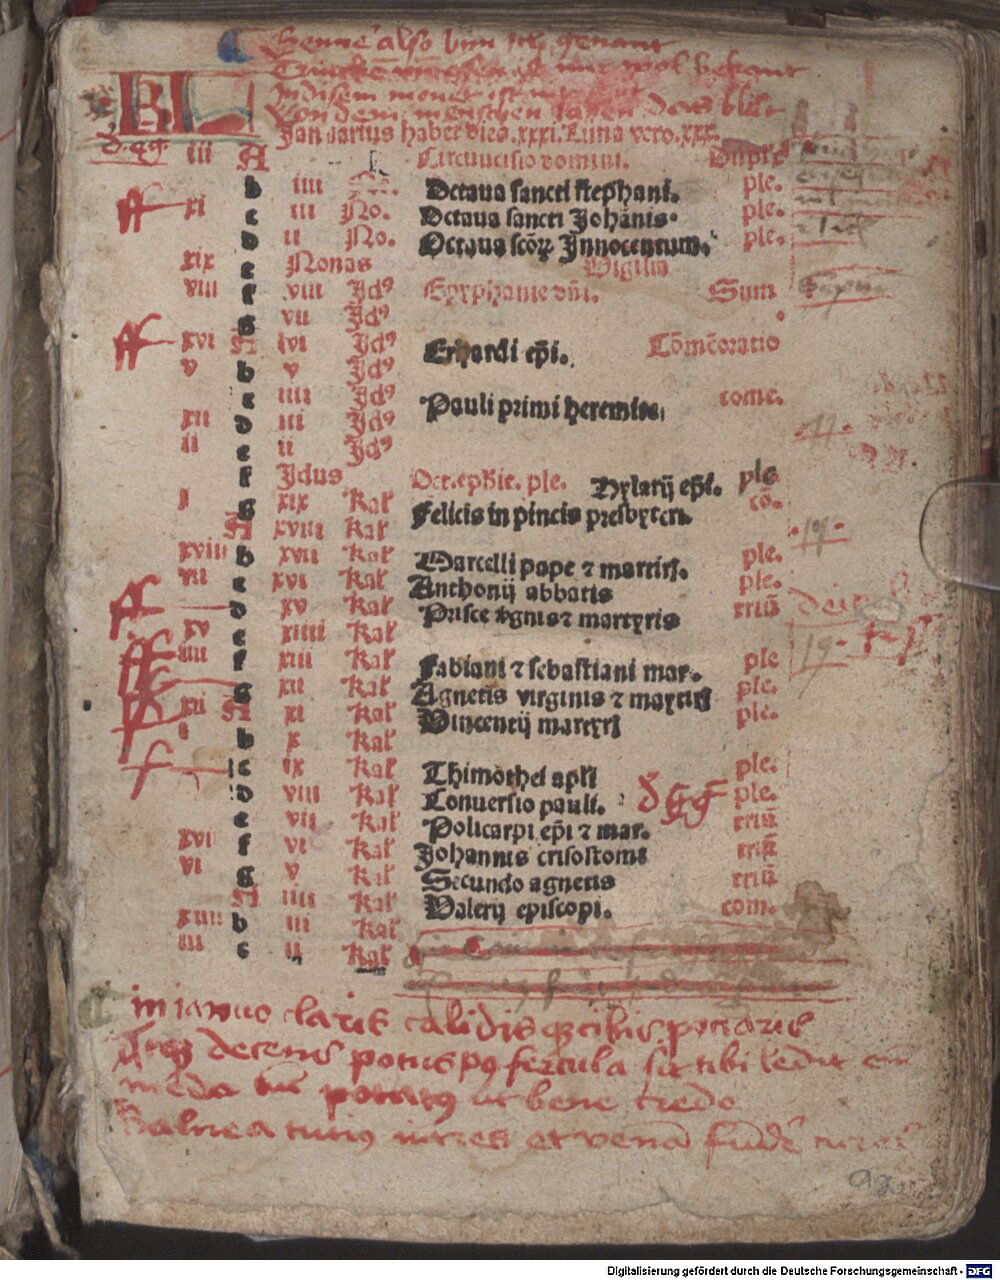 Jenner also bin ich genant
Trincken und essen ist mir wol bekant
In disem monet ist
Von dem menschen lassen das blůt
KL Januarius habet dies .xxxi. Luna vero .xxx.
iii A Circuncisio domini. Duplex
b iiii No. Octaua sancti stephani. ple.
xi c iii No. Octaua sancti Johānis. ple.
d ii No. Octaua scōꝝ Innocentum. ple.
xix e Nonas Vigilia
viii f viii Jdꝰ Epyphanie dn̄i. Sum
g vii Jdꝰ
xvi A vi Jdꝰ Erhardi ep̄i. Cōmēoratio
v b v Jdꝰ
c iiii Jdꝰ Pauli primi heremite. come.
xii d iii Jdꝰ
ii e ii Jdꝰ
f Jdus Oct. ep̄hie. ple. Hylarij ep̄i. ple
i g xix Kal Felicis in pincis presbyteri. cō.
A xviii Kal
xviii b xvii Kal Marcelli pape ⁊ martiris. ple.
vii c xvi Kal Anthonij abbatis ple.
d xv Kal Prisce v̄gnis ⁊ martyris triū
xv e xiiii Kal
iiii f xiii Kal Fabiani ⁊ sebastiani mar. ple
g xii Kal Agnetis virginis ⁊ martiris ple.
xii A xi Kal Vincentij martyris ple.
i b x Kal
c ix Kal Thimothei apl̄i ple.
d viii Kal Conuersio pauli. ple.
e vii Kal Policarpi ep̄i ⁊ mar. triū
xvi f vi Kal Johannis crisostomi triū
vi g v Kal Secundo agnetis triū
A iiii Kal Valerij episcopi. com.
xiiii b iii Kal
iii c ii Kal
19.
19.
in ianuo claris calidisqꝫ cibis potiaris
Atqꝫ decens potus pꝰ fercula sit tibi
potatꝰ ut bene credo
Balnea tutiꝰ intres et venā